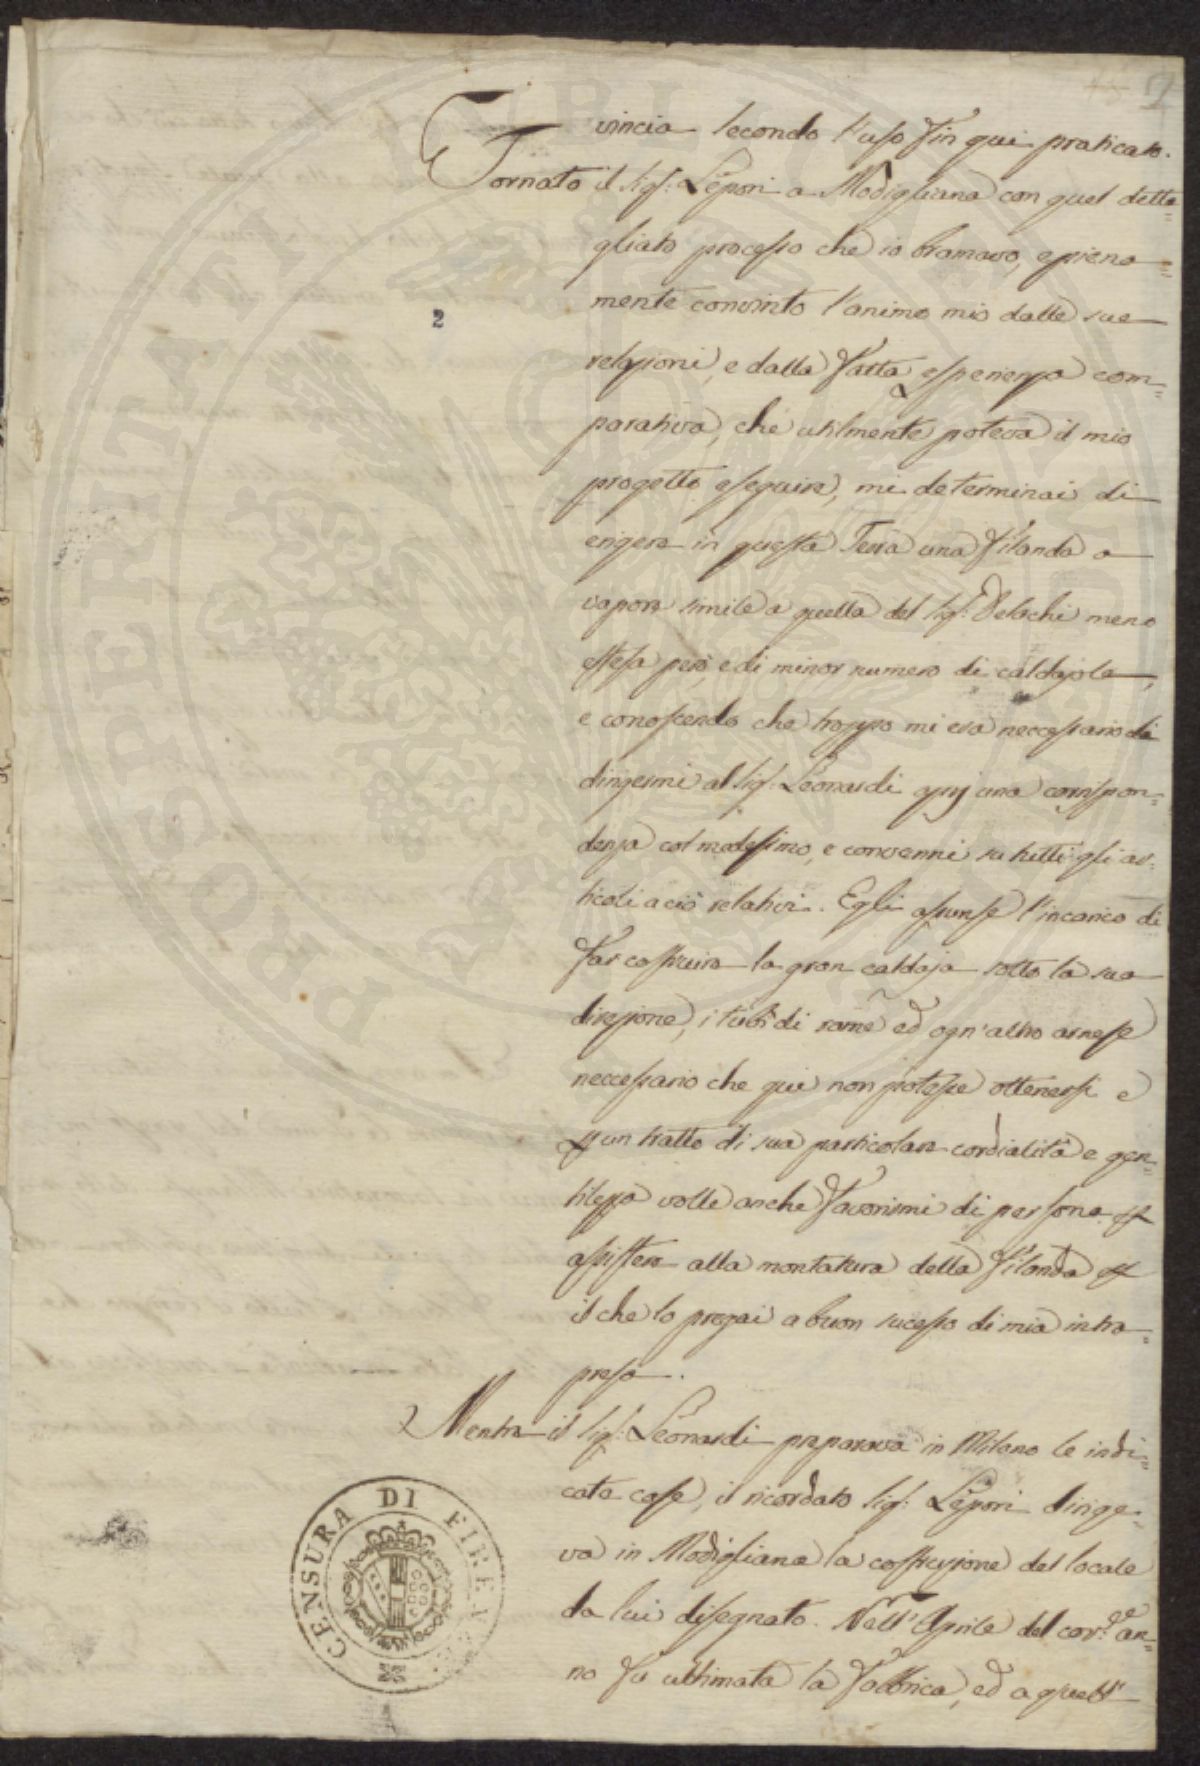 vincia secondo l'uso fin qui praticato.
Tornato il Sig.r Lépori a Modigliana con quel detta=
gliato processo che io bramavo, e piena=
mente convinto l'animo mio dalle sue
2
relazioni, e dalla fatta esperienza com=
parativa, che utilmente poteva il mio
progetto eseguire, mi determinai di
erigere in questa Terra una filanda a
vapore simile a quella del Sig.r Delachi meno
estesa però, e di minor numero di caldajole,
e conoscendo che troppo mi era neccessario di
dirigermi al Sig.r Leonardi aprij una corrispon=
denza col medesimo, e convenni su tutti gli ar=
ticoli a ciò relativi. Egli assunse l'incarico di
far costruire la gran caldaja sotto la sua
direzione, i tubi di rame ed ogn'altro arnese
neccessario che qui non potesse ottenersi e
per un tratto di sua particolare cordialità e gen=
tilezza volle anche favorirmi di persona
assistere alla montatura della filanda
il che lo pregai a buon sucesso di mia intra=
presa.
Mentre il Sig.r Leonardi preparava in Milano le indi=
cate cose, il ricordato Sig.r Lépori dirige=
va in Modigliana la costruzione del locale
da lui disegnato. Nell'Aprile del corr.e an=
no fu ultimata la fabbrica, ed a quell'
CENSURA DI FIRENZE
PROSPERITATI PUBLICAE